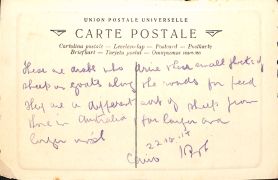 UNION POSTALE UNIVERSELLE
CARTE POSTALE
Cartolina postale — Levelező-lap — Postcard — Postkarte
Briefkort — Tarjeta postal — Открытое письмо
These are arabs who drive these small flocks of
sheep or goats along the roads for feed
They are a different sort of sheep from
those in Australia far larger and
longer
22.10.17
Cairo